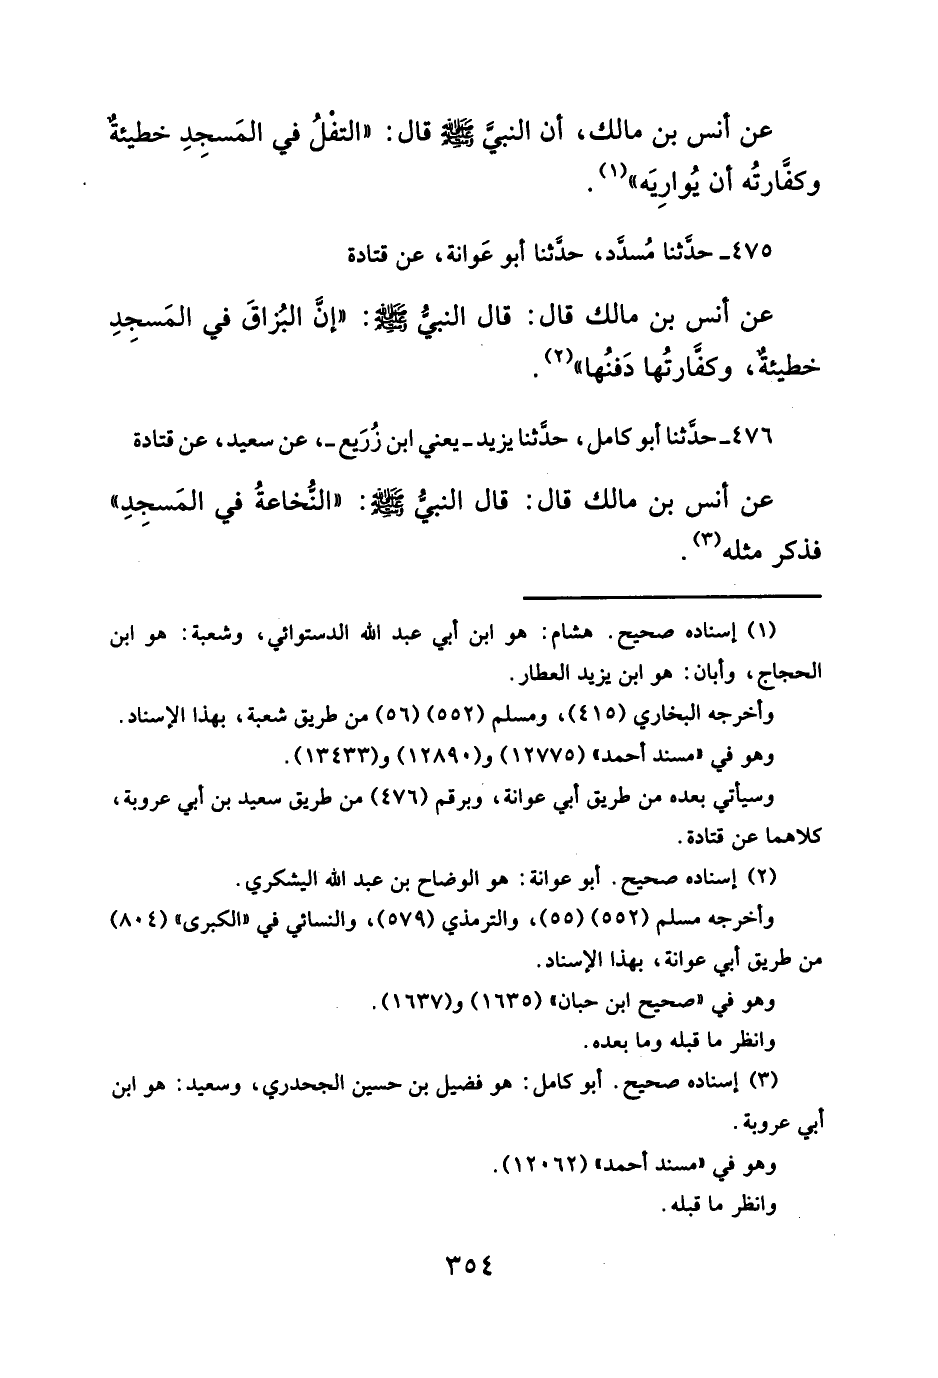 عن أنس بن مالك، أن النبيَّ ﷺ قال: «التفْلُ في المَسجِدِ خطيئةٌ
وكفَّارتُه أن يُوارِيَه»(١).
٤٧٥ـ حدَّثنا مُسدَّد، حدَّثنا أبو عَوانة، عن قتادة
عن أنس بن مالك قال: قال النبيُّ ﷺ: «إنَّ البُزاقَ في المَسجِدِ
خطيئةٌ، وكفَّارتُها دَفنُها»(٢).
٤٧٦ـ حدَّثنا أبو كامل، حدَّثنا يزيد ـ يعني ابن زُرَيع ـ، عن سعيد، عن قتادة
عن أنس بن مالك قال: قال النبيُّ ﷺ: «النُّخاعةُ في المَسجِدِ»
فذكر مثله(٣).
(١) إسناده صحيح. هشام: هو ابن أبي عبد الله الدستوائي، وشعبة: هو ابن
الحجاج، وأبان: هو ابن يزيد العطار.
وأخرجه البخاري (٤١٥)، ومسلم (٥٥٢) (٥٦) من طريق شعبة، بهذا الإسناد.
وهو في «مسند أحمد» (١٢٧٧٥) و(١٢٨٩٠) و(١٣٤٣٣).
وسيأتي بعده من طريق أبي عوانة، وبرقم (٤٧٦) من طريق سعيد بن أبي عروبة،
كلاهما عن قتادة.
(٢) إسناده صحيح. أبو عوانة: هو الوضاح بن عبد الله اليشكري.
وأخرجه مسلم (٥٥٢) (٥٥)، والترمذي (٥٧٩)، والنسائي في «الكبرى» (٨٠٤)
من طريق أبي عوانة، بهذا الإسناد.
وهو في «صحيح ابن حبان» (١٦٣٥) و(١٦٣٧).
وانظر ما قبله وما بعده.
(٣) إسناده صحيح. أبو كامل: هو فضيل بن حسين الجحدري، وسعيد: هو ابن
أبي عروبة.
وهو في «مسند أحمد» (١٢٠٦٢).
وانظر ما قبله.
٣٥٤